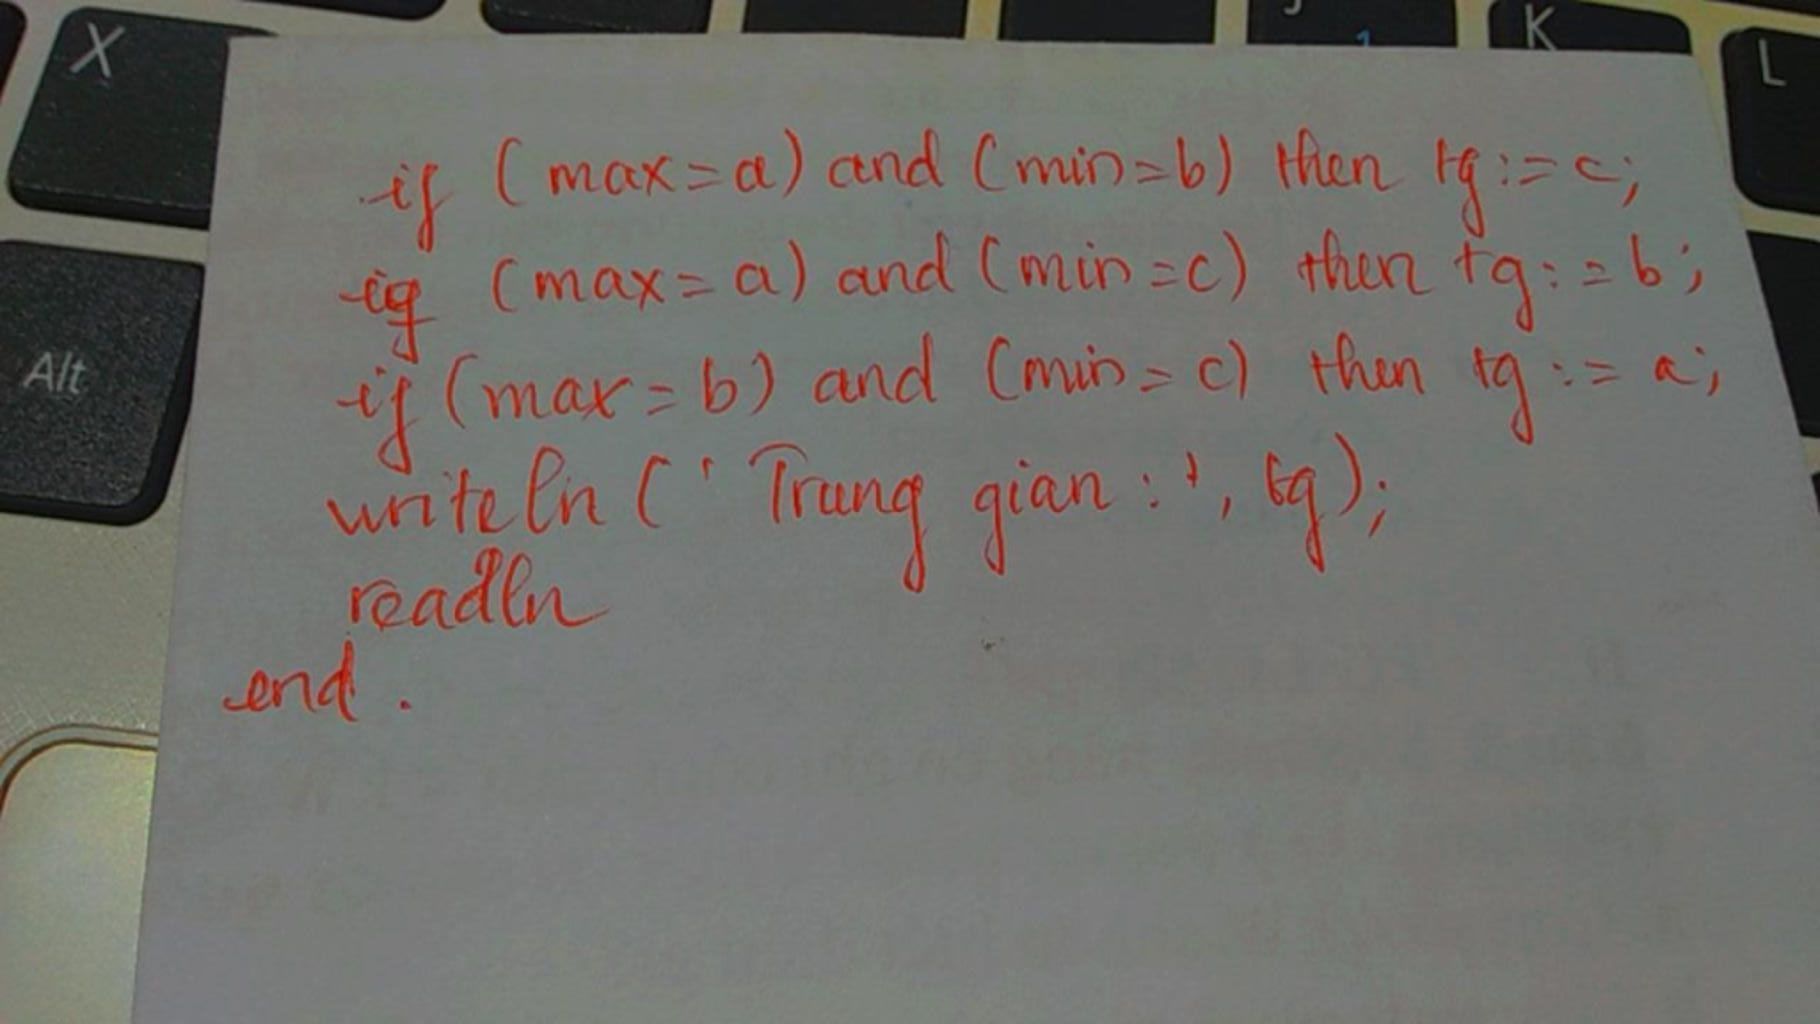 X
K
L
Alt
if (max=a) and (min=b) then tg:=c;
if (max=a) and (min=c) then tg:=b;
if (max=b) and (min=c) then tg:=a;
writeln ('Trung gian:', tg);
readln
end.